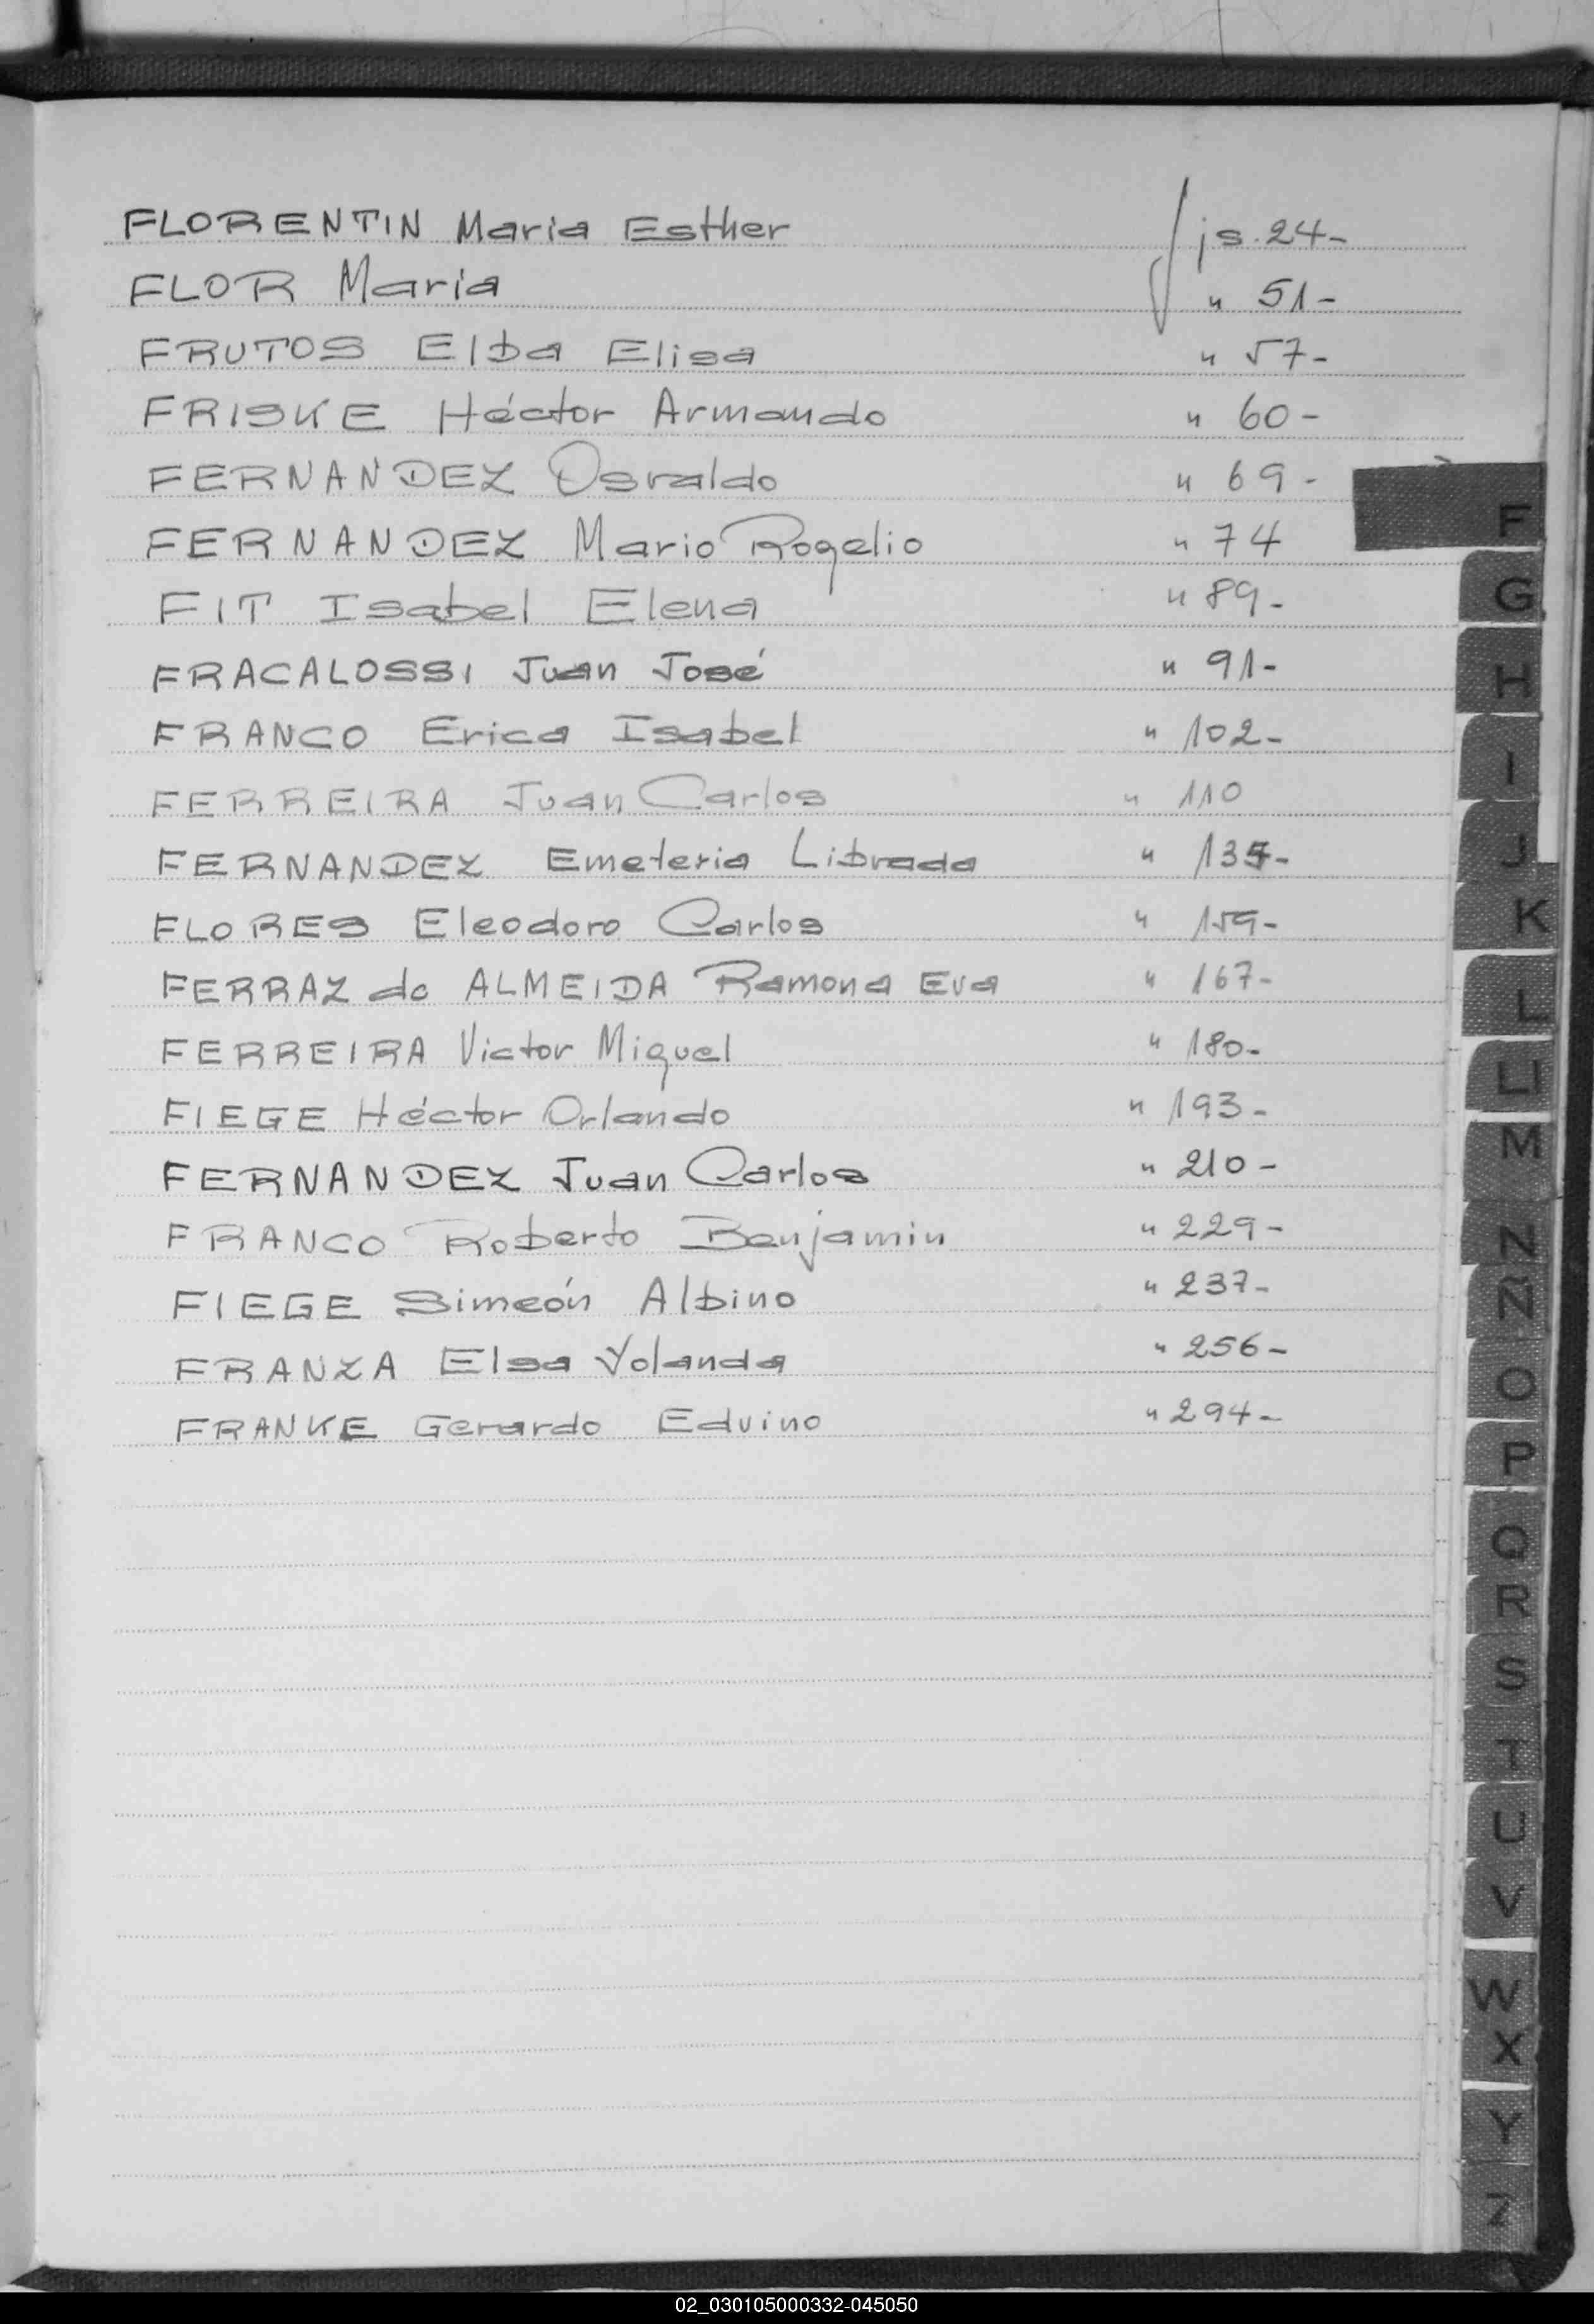 FLORENTIN Maria Esther fjs. 24-
FLOR Maria " 51-
FRUTOS Elba Elisa " 57-
FRISKE Héctor Armando " 60-
FERNANDEZ Osvaldo " 69-
FERNANDEZ Mario Rogelio " 74
FIT Isabel Elena " 89-
FRACALOSSI Juan José " 91-
FRANCO Erica Isabel " 102-
FERREIRA Juan Carlos " 110
FERNANDEZ Emeteria Librada "
FLORES Eleodoro Carlos " 159-
FERRAZ de ALMEIDA Ramona Eva " 167-
FERREIRA Victor Miguel " 180-
FIEGE Héctor Orlando " 193-
FERNANDEZ Juan Carlos " 210-
FRANCO Roberto Benjamin " 229-
FIEGE Simeón Albino " 237-
FRANZA Elsa Yolanda " 256-
FRANKE Gerardo Eduino " 294-
F
G
H
I
J
K
L
LI
M
N
Ñ
O
P
Q
R
S
T
U
V
W
X
Y
Z
02_030105000332-045050